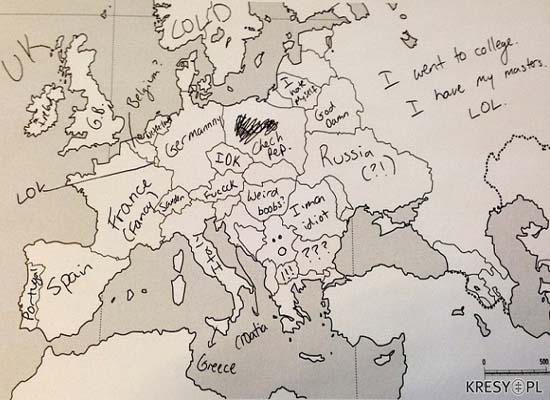 UK
COLD
I went to college.
I have my masters.
LOL.
Ireland
G.B.
Belgium?
LOL
Germanny
Chech
Rep.
IDK
God
Damn
Russia
(?!)
France
(Fancy)
Fuccck
Weird
boobs?
I'm an
idiot
???
!!!
Portugal
Spain
Italy
Croatia
Greece
0
500
KRESY.PL